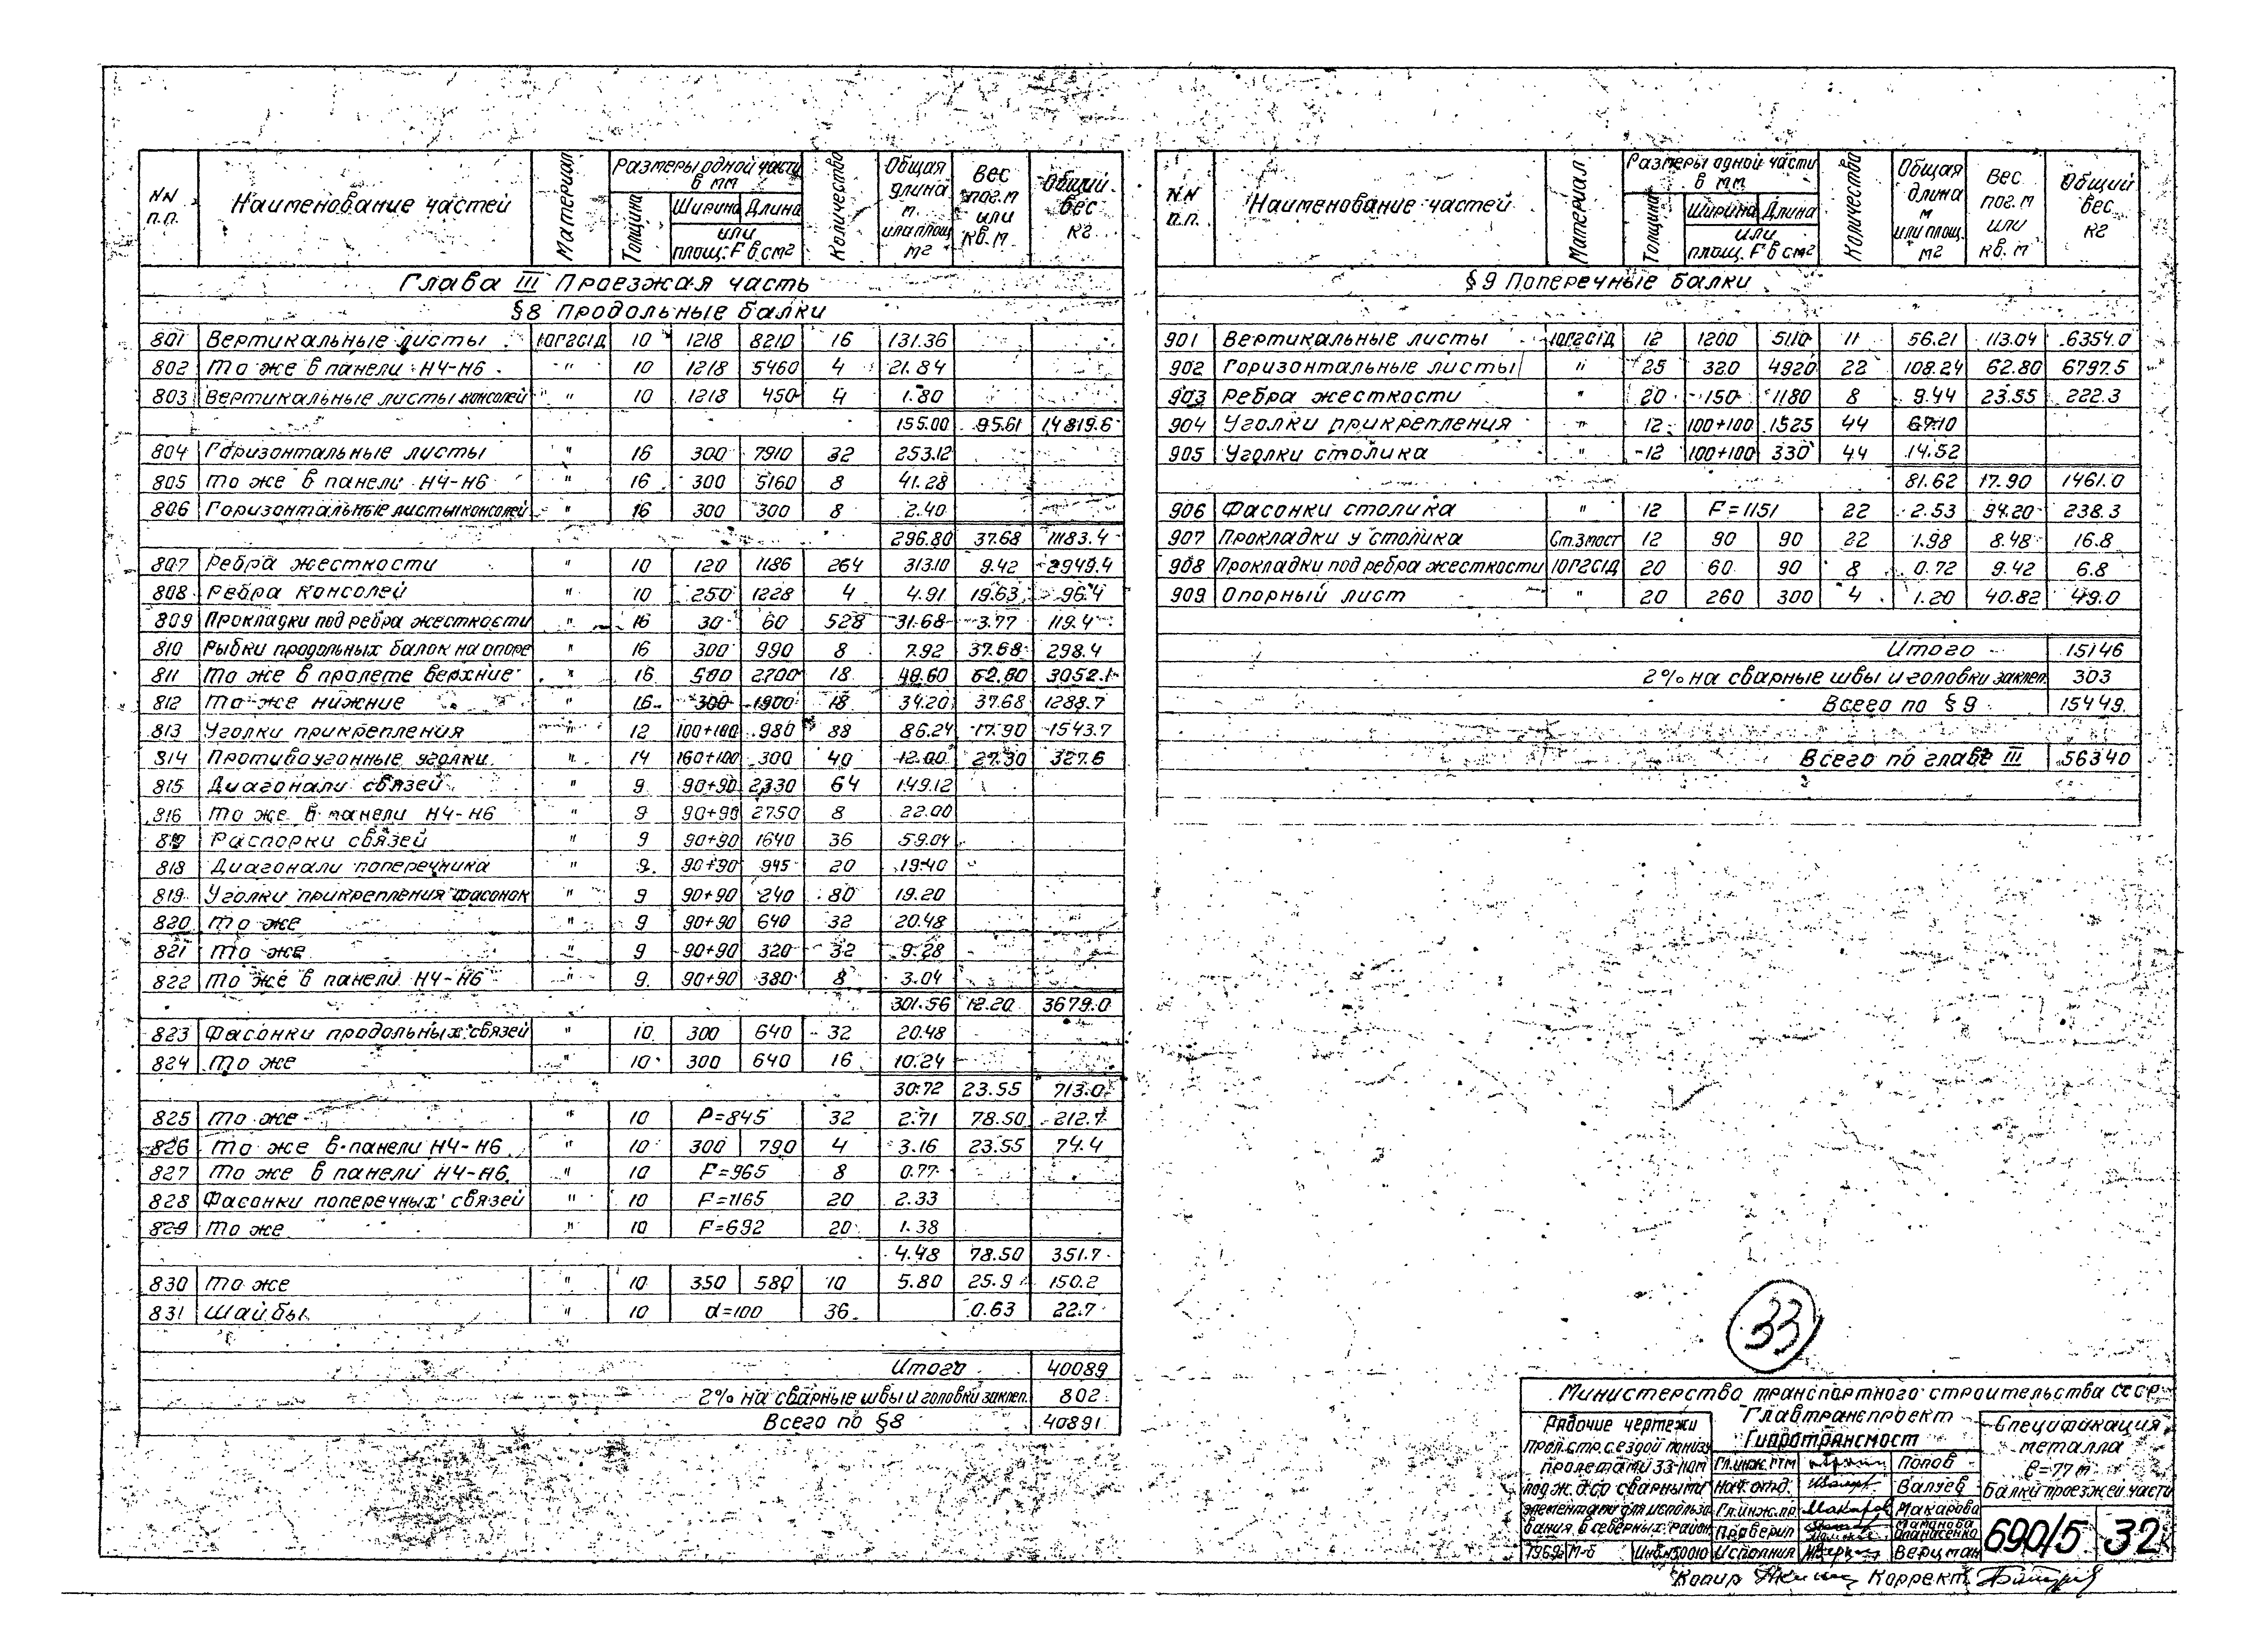 NN п.п. Наименование частей Материал Размеры одной части в мм Количество Общая длина м. или площ м2 Вес пог.м или кв.м Общий вес кг
Толщина Ширина Длина или площ: F в см2
Глава III Проезжая часть
§8 Продольные балки
801 Вертикальные листы 10Г2С1Д 10 1218 8210 16 131.36
802 То же в панели Н4-Н6 " 10 1218 5460 4 21.84
803 Вертикальные листы консолей " 10 1218 450 4 1.80
155.00 95.61 14819.6
804 Горизонтальные листы " 16 300 7910 32 253.12
805 То же в панели Н4-Н6 " 16 300 5160 8 41.28
806 Горизонтальные листы консолей " 16 300 300 8 2.40
296.80 37.68 11183.4
807 Ребра жесткости " 10 120 1186 264 313.10 9.42 2949.4
808 Ребра консолей " 10 250 1228 4 4.91 19.63 96.4
809 Прокладки под ребра жесткости " 16 30 60 528 31.68 3.77 119.4
810 Рыбки продольных балок на опоре " 16 300 990 8 7.92 37.68 298.4
811 То же в пролете верхние " 16 500 2700 18 48.60 62.80 3052.1
812 То же нижние " 16 300 1900 18 34.20 37.68 1288.7
813 Уголки прикрепления " 12 100+100 980 88 86.24 17.90 1543.7
814 Противоугонные уголки " 14 160+100 300 40 12.00 27.30 327.6
815 Диагонали связей " 9 90+90 2330 64 149.12
816 То же в панели Н4-Н6 " 9 90+90 2750 8 22.00
817 Распорки связей " 9 90+90 1640 36 59.04
818 Диагонали поперечника " 9 90+90 945 20 19.40
819 Уголки прикрепления фасонок " 9 90+90 240 80 19.20
820 То же " 9 90+90 640 32 20.48
821 То же " 9 90+90 320 32 9.28
822 То же в панели Н4-Н6 " 9 90+90 380 8 3.04
301.56 12.20 3679.0
823 Фасонки продольных связей " 10 300 640 32 20.48
824 То же " 10 300 640 16 10.24
30.72 23.55 713.0
825 То же " 10 P=845 32 2.71 78.50 212.7
826 То же в панели Н4-Н6 " 10 300 790 4 3.16 23.55 74.4
827 То же в панели Н4-Н6 " 10 F=965 8 0.77
828 Фасонки поперечных связей " 10 F=1165 20 2.33
829 То же " 10 F=692 20 1.38
4.48 78.50 351.7
830 То же " 10 350 580 10 5.80 25.9 150.2
831 Шайбы " 10 d=100 36 0.63 22.7
Итого 40089
2% на сварные швы и головки заклеп. 802
Всего по §8 40891
NN п.п. Наименование частей Материал Размеры одной части в мм Количество Общая длина м или площ. м2 Вес пог.м или кв.м Общий вес кг
Толщина Ширина Длина или площ. F в см2
§9 Поперечные балки
901 Вертикальные листы 10Г2С1Д 12 1200 5110 11 56.21 113.04 6354.0
902 Горизонтальные листы " 25 320 4920 22 108.24 62.80 6797.5
903 Ребра жесткости " 20 150 1180 8 9.44 23.55 222.3
904 Уголки прикрепления " 12 100+100 1525 44 67.10
905 Уголки столика " 12 100+100 330 44 14.52
81.62 17.90 1461.0
906 Фасонки столика " 12 F=1151 22 2.53 94.20 238.3
907 Прокладки у столика Ст.3мост 12 90 90 22 1.98 8.48 16.8
908 Прокладки под ребра жесткости 10Г2С1Д 20 60 90 8 0.72 9.42 6.8
909 Опорный лист " 20 260 300 4 1.20 40.82 49.0
Итого 15146
2% на сварные швы и головки заклеп. 303
Всего по §9 15449
Всего по главе III 56340
33
Министерство транспортного строительства СССР
Главтранспроект
Гипротрансмост
Рабочие чертежи
прол. стр. с ездой понизу
пролетами 33-110м
под ж.д. со сварными
элементами для использо
вания в северных район.
1969г М-б Инв.N50010
Гл.инж.ГТМ Попов
Нач.отд. Валуев
Гл.инж.пр. Макарова
Проверил Мамонова Опанасенко
Исполнил Верцман
Спецификация
металла
ℓ=77м
Балки проезжей части
690/5 32
Копир Коррект.